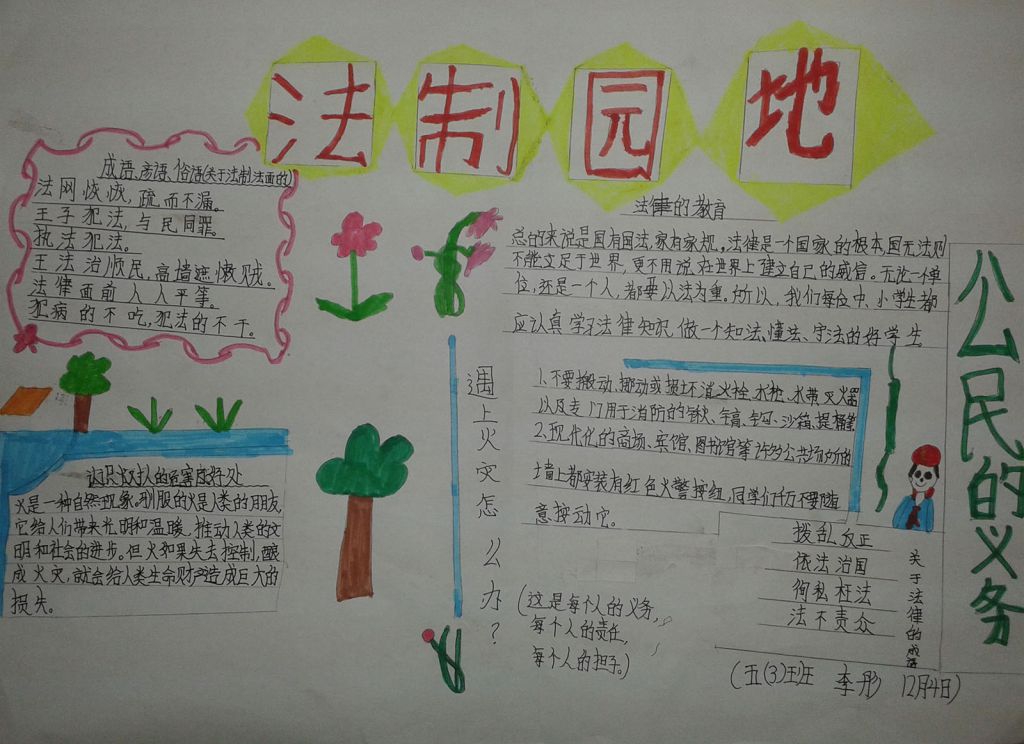 法制园地
成语、谚语、俗语(关于法制法面的)
法网恢恢,疏而不漏。
王子犯法,与民同罪。
执法犯法。
王法治顺民,高墙遮懒贼。
法律面前人人平等。
犯病的不吃,犯法的不干。
法律的教育
总的来说是国有国法,家有家规。法律是一个国家的根本,国无法则
不能立足于世界,更不用说在世界上建立自己的威信。无论一个单
位,还是一个人,都要以法为重。所以,我们每位中、小学生都
应认真学习法律知识,做一个知法、懂法、守法的好学生
公民的义务
遇上火灾怎么办?
1.不要搬动、挪动或损坏消火栓、水枪、水带、灭火器
以及专门用于消防的锹、镐、钩、沙箱、提桶等
2.现代化的商场、宾馆、图书馆等许多公共场所的
墙上都安装有红色火警按纽,同学们千万不要随
意按动它。
的危害的好处
火是一种自然现象。驯服的火是人类的朋友,
它给人们带来光明和温暖,推动人类的文
明和社会的进步。但火如果失去控制,酿
成火灾,就会给人类生命财产造成巨大的
损失。
拨乱反正
依法治国
徇私枉法
法不责众
关于法律的成语
(这是每个人的义务,
每个人的责任,
每个人的担子。)
(五(3)班 李彤 12月4日)